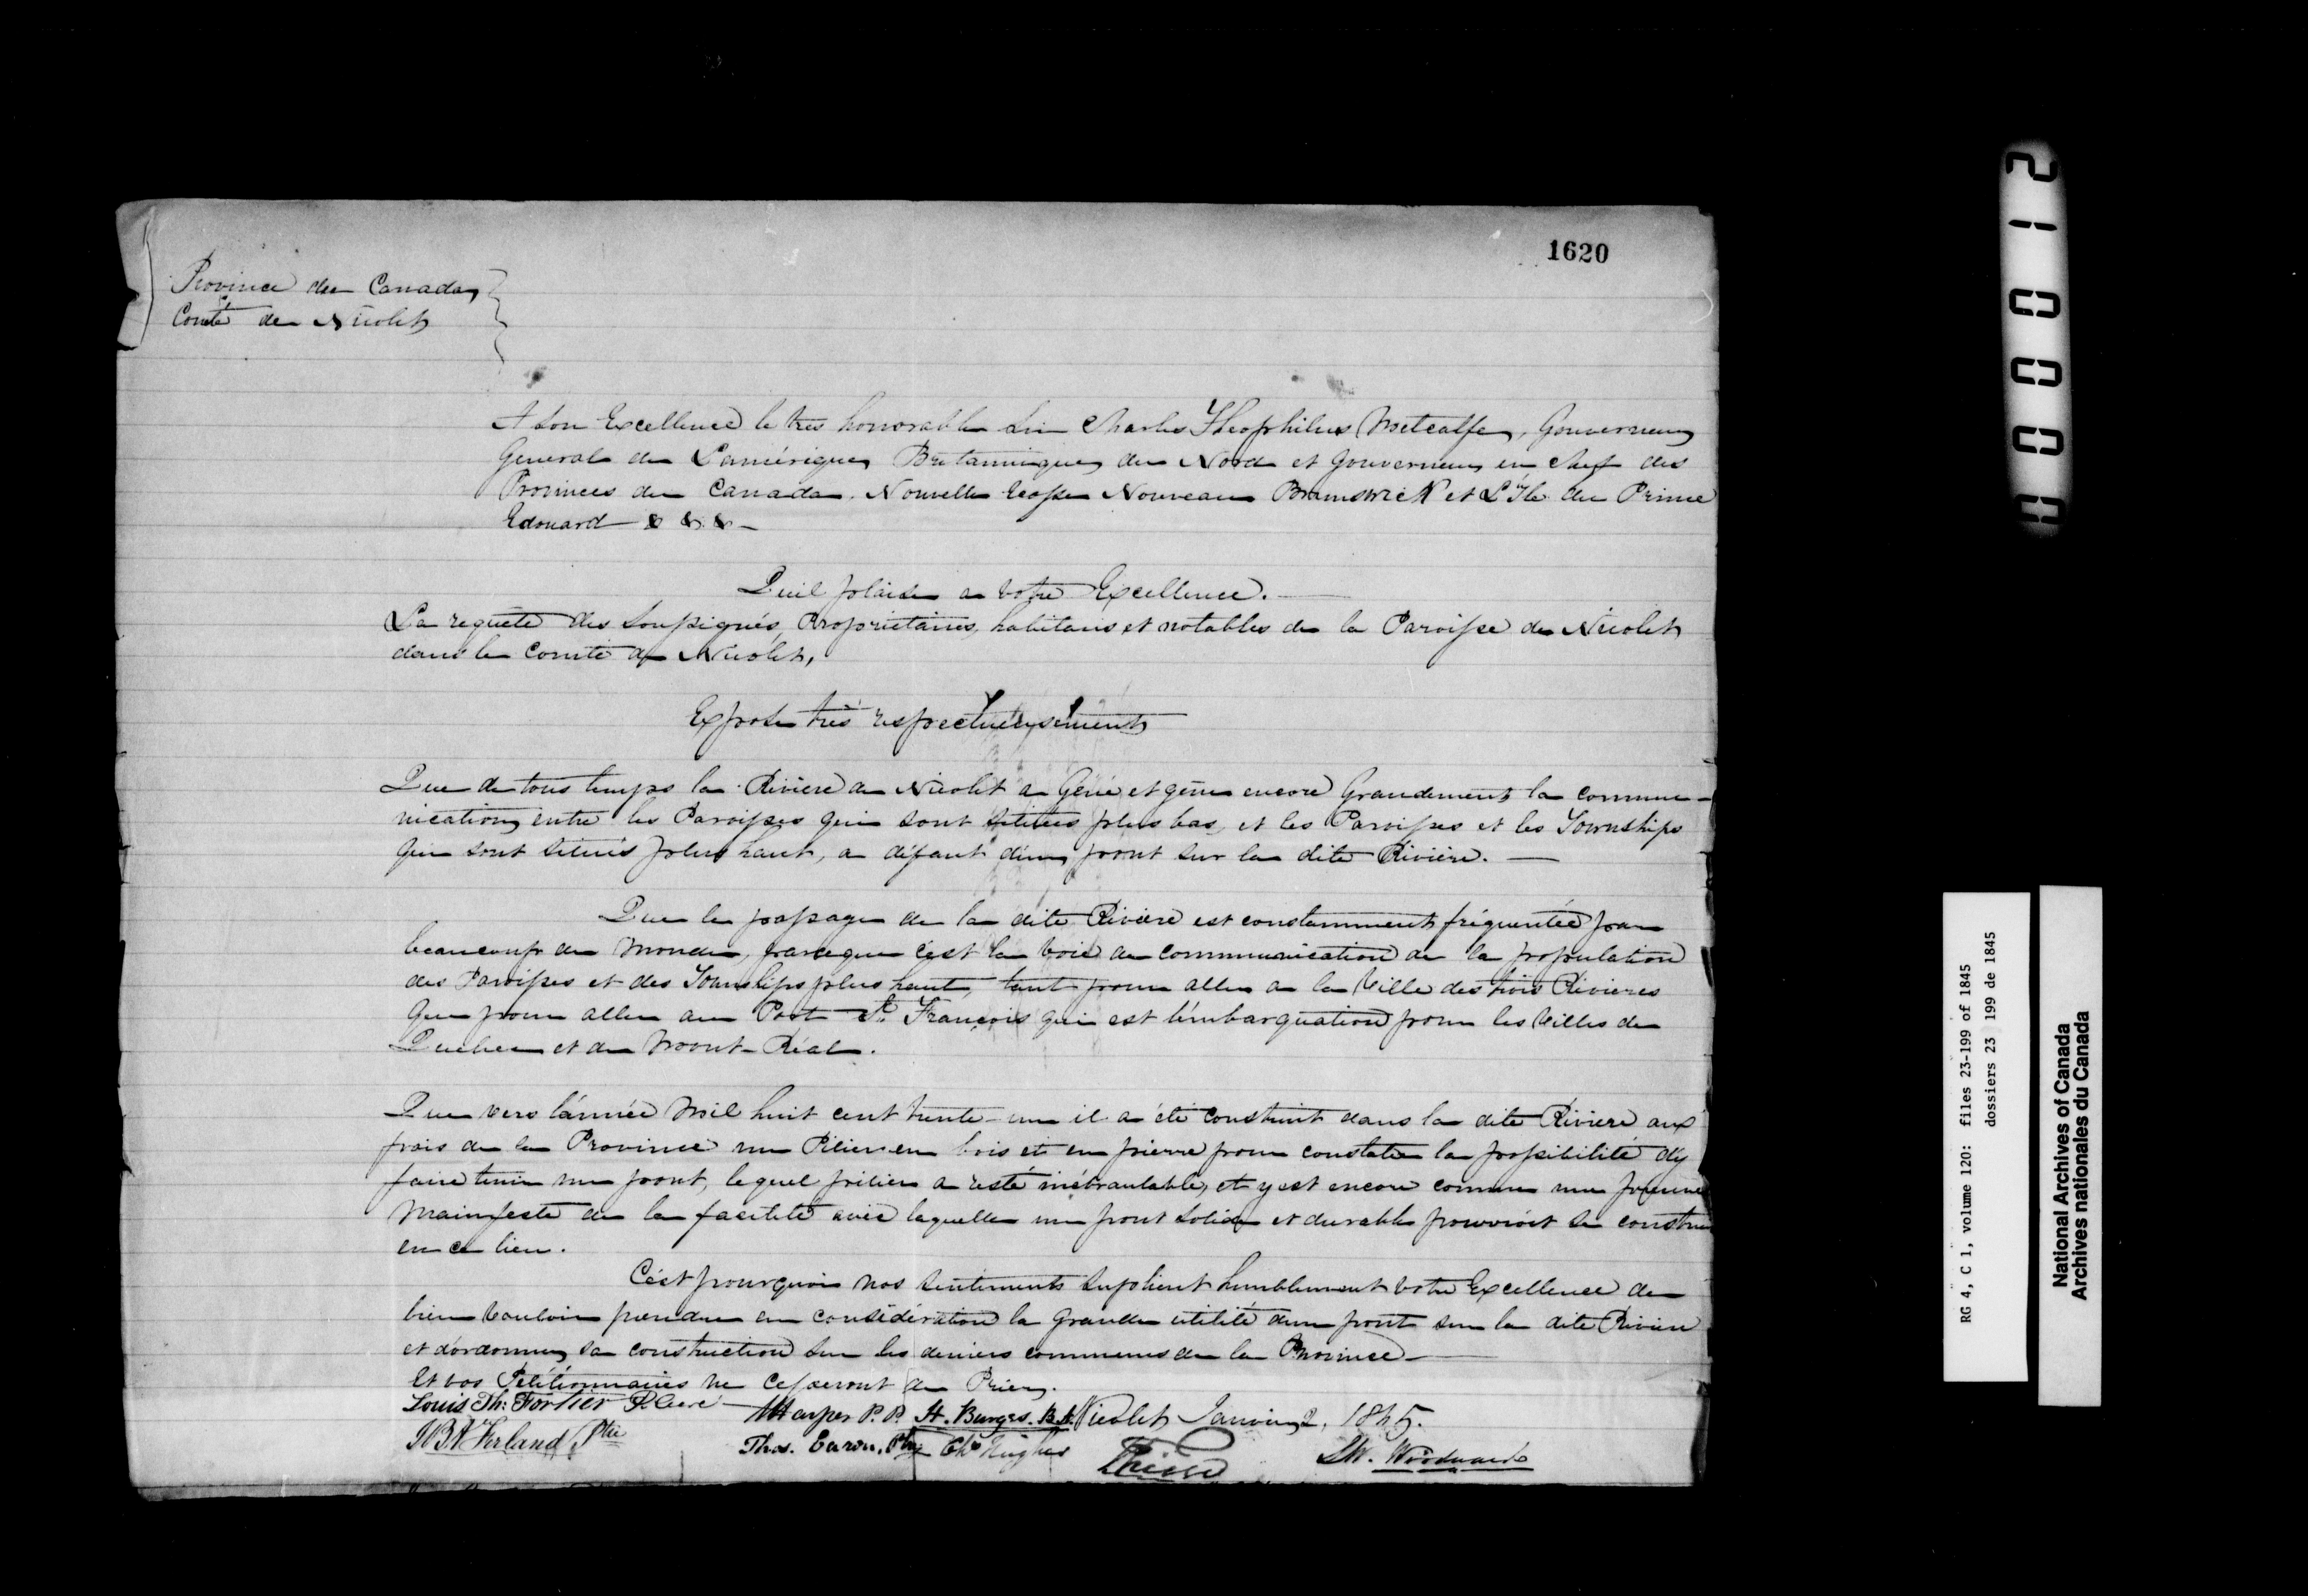 1620
Province du Canada
Comté de Nicolet
A Son Excellence le très honorable Sir Charles Théophilus Metcalfe, Gouverneur
General de L'amérique Britannique du Nord et Gouverneur en Chef des
Provinces du Canada, Nouvelle Ecosse Nouveau Brunswick et L'Ile du Prince
Edouard & & & —
Qu'il plaise a votre Excellence. —
La requête des Soussignés, Propriétaires, habitans et notables de la Paroisse de Nicolet
dans le Comté de Nicolet,
Expose très respectueusement
Que de tous temps la Rivière de Nicolet a Géné et gène encore Grandement la commu-
nication entre les Paroisses qui sont situées plus bas, et les Paroisses et les Townships
qui sont situés plus haut, a défaut d'un pont sur la dite Rivière. —
Que le passage de la dite Rivière est constamment fréquentée par
beaucoup de Monde, parceque c'est la voie de communication de la population
des Paroisses et des Townships plus haut, tant pour aller a la Ville des trois Rivieres
que pour aller au Port St. François qui est l'embarquation pour les Villes de
Québec et de Mont-Réal.
Que vers l'année Mil huit cent trente-un il a été construit dans la dite Rivière aux
frais de la Province un Pilier en bois et en pierre pour constater la possibilité d'y
faire tenir un pont, lequel pilier a resté inébranlable, et y est encore comme une preuve
Manifeste de la facilité avec laquelle un pont solide et durable pourroit se constru
en ce lieu.
C'est pourquoi nos sentiments suplient humblement votre Excellence de
bien vouloir prendre en considération la grande utilité d'un pont sur la dite Rivière
et d'ordonner sa construction sur les deniers communs de la Province —
Et vos Pétitionnaires ne cesseront de Prier.
Nicolet Janvier 2, 1845.
Louis Th: Fortier P. Curé
Harper P. P. H. Burges.
JBA Ferland Ptre
Thos. Caron, Ptre Chs Hughes
Woodward
0000012
RG 4, C 1, volume 120: files 23-199 of 1845
dossiers 23 199 de 1845
National Archives of Canada
Archives nationales du Canada